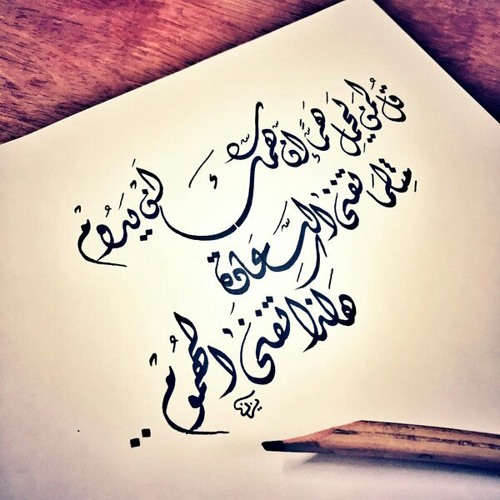 قل لمن يحمل همًا إن همك لن يدوم
مثلما تفنى السعادة
هكذا تفنى الهموم